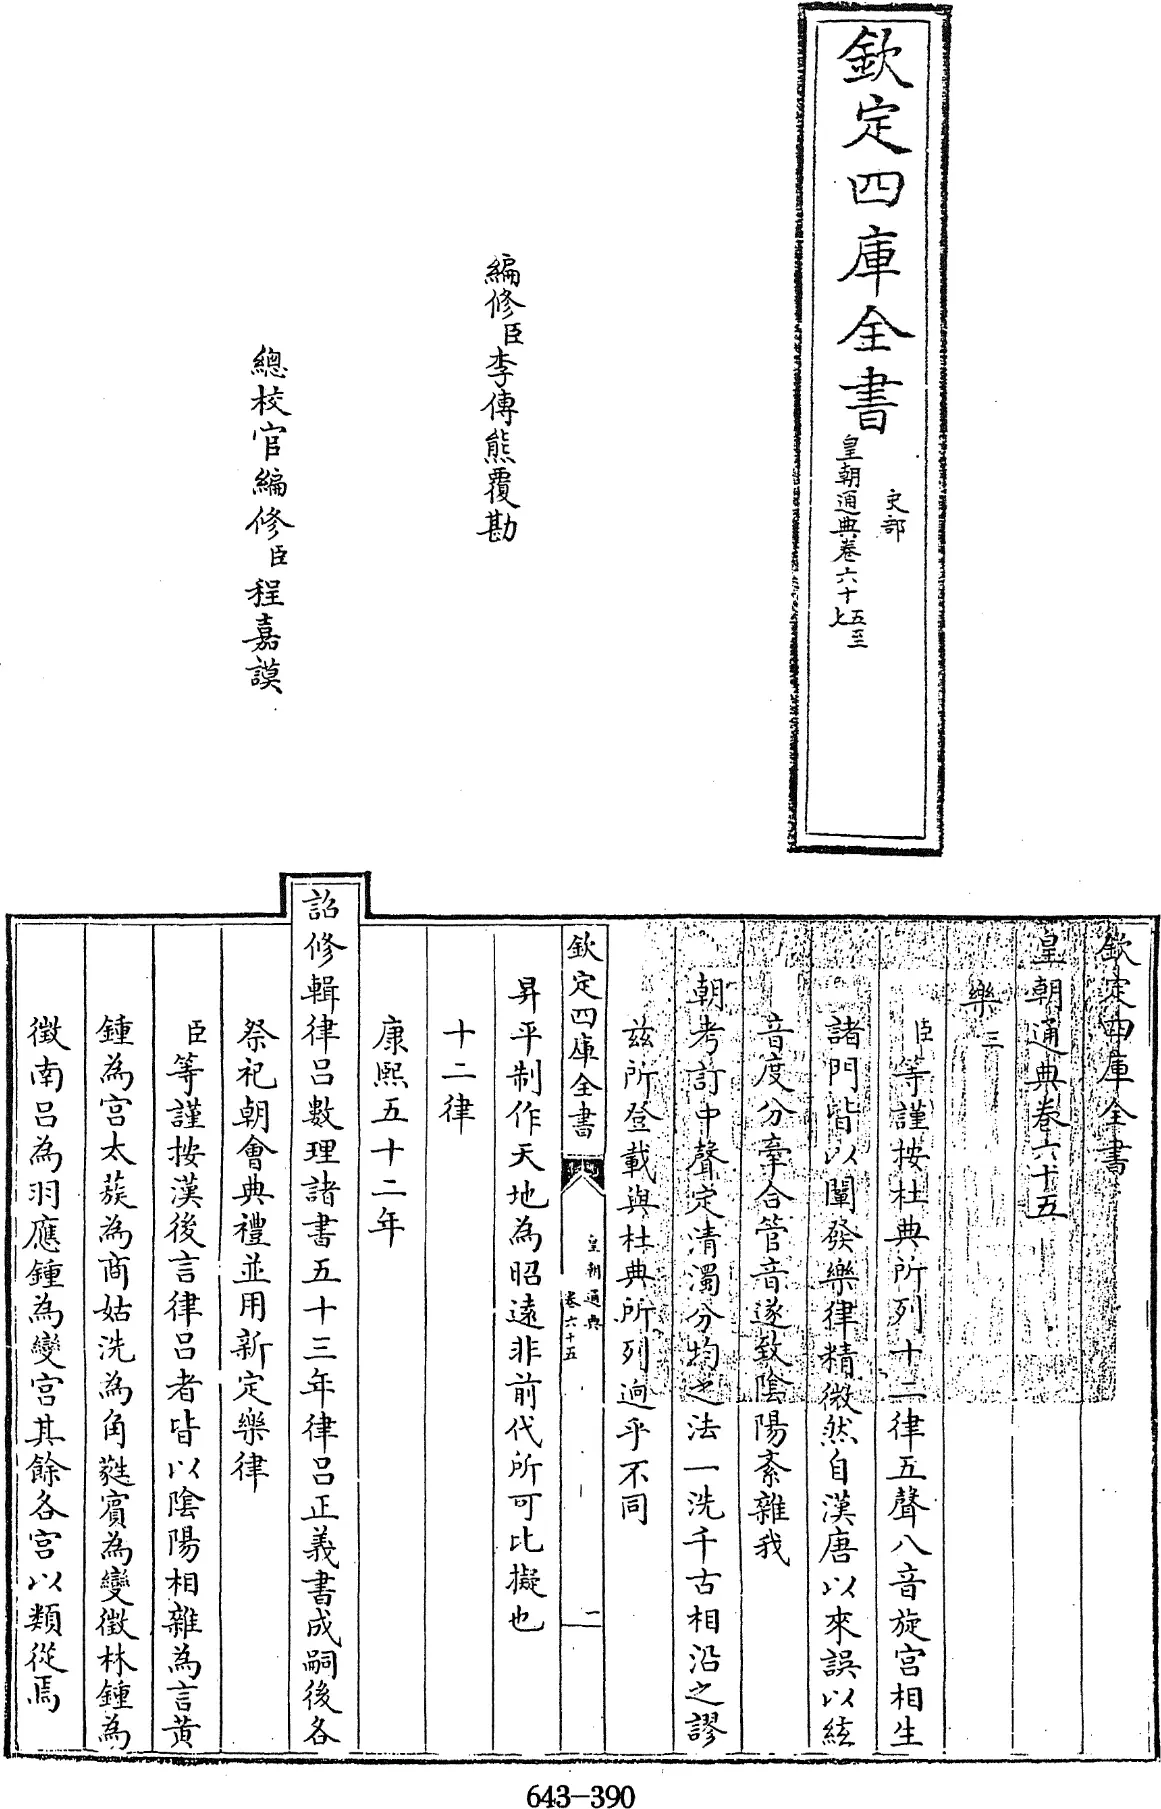 欽定四庫全書
史部
皇朝通典卷六十五至
七
編修臣李傳熊覆勘
總校官編修臣程嘉謨
欽定四庫全書
皇朝通典卷六十五
樂三
臣等謹按杜典所列十二律五聲八音旋宮相生
諸門皆以闡發樂律精微然自漢唐以來誤以絃
音度分牽合管音遂致陰陽紊雜我
朝考訂中聲定清濁分均之法一洗千古相沿之謬
兹所登載與杜典所列迥乎不同
欽定四庫全書
皇朝通典
卷六十五
二
昇平制作天地為昭遠非前代所可比擬也
十二律
康熙五十二年
詔修輯律呂數理諸書五十三年律呂正義書成嗣後各
祭祀朝會典禮並用新定樂律
臣等謹按漢後言律呂者皆以陰陽相雜為言黃
鍾為宮太蔟為商姑洗為角蕤賓為變徵林鍾為
徵南呂為羽應鍾為變宮其餘各宮以類從焉
643-390